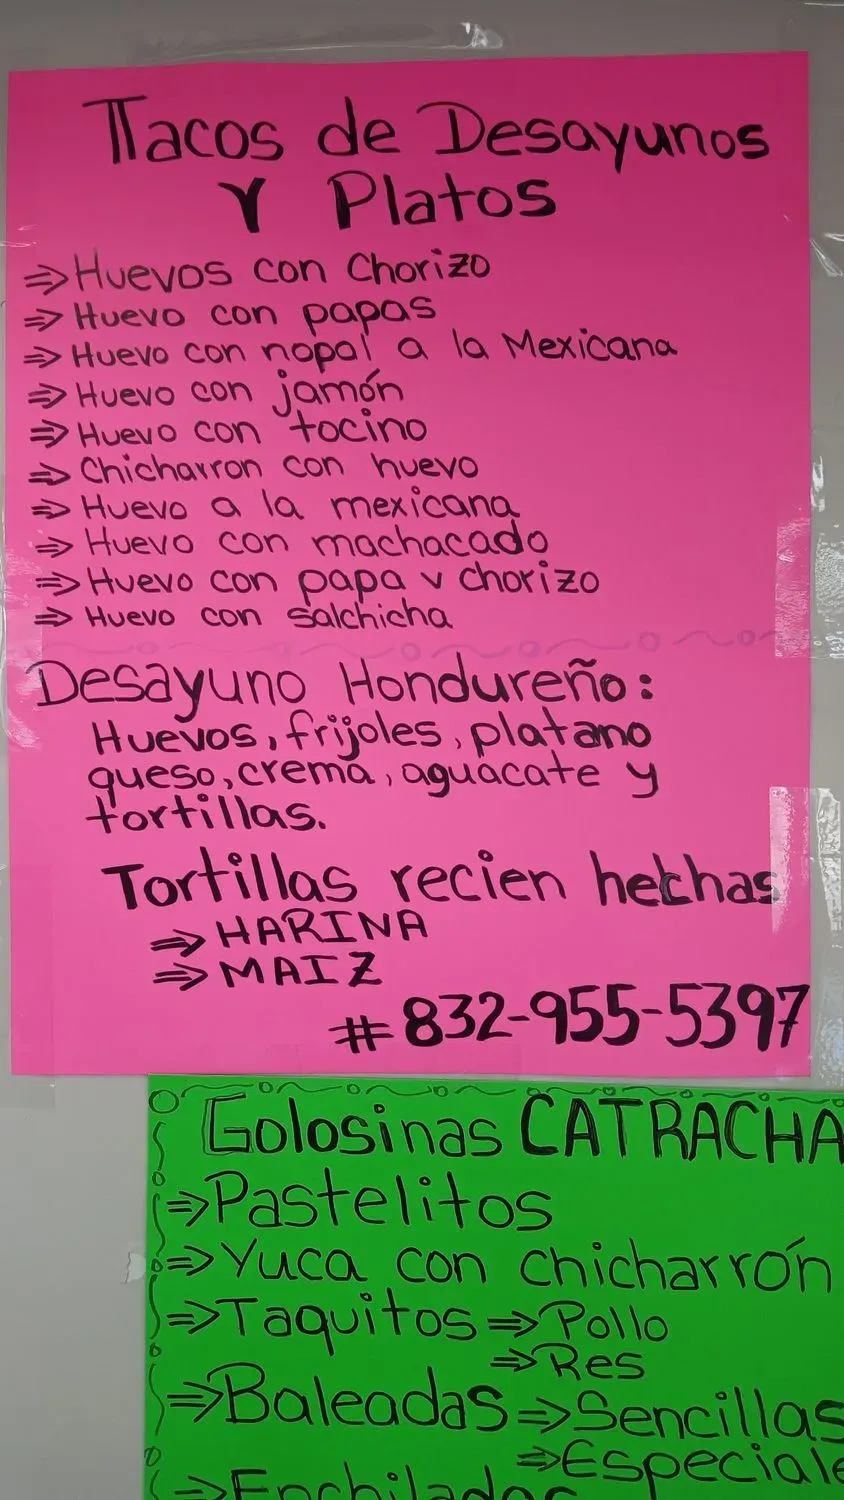 Tacos de Desayunos
Y Platos
⇒ Huevos con Chorizo
⇒ Huevo con papas
⇒ Huevo con nopal a la Mexicana
⇒ Huevo con jamón
⇒ Huevo con tocino
⇒ Chicharron con huevo
⇒ Huevo a la mexicana
⇒ Huevo con machacado
⇒ Huevo con papa y chorizo
⇒ Huevo con salchicha
Desayuno Hondureño:
Huevos, frijoles, platano
queso, crema, aguacate y
tortillas.
Tortillas recien hechas
⇒ HARINA
⇒ MAIZ
#832-955-5397
Golosinas CATRACHA
⇒ Pastelitos
⇒ Yuca con chicharrón
⇒ Taquitos ⇒ Pollo
⇒ Res
⇒ Baleadas ⇒ Sencillas
⇒ Especiale
⇒ Enchiladas